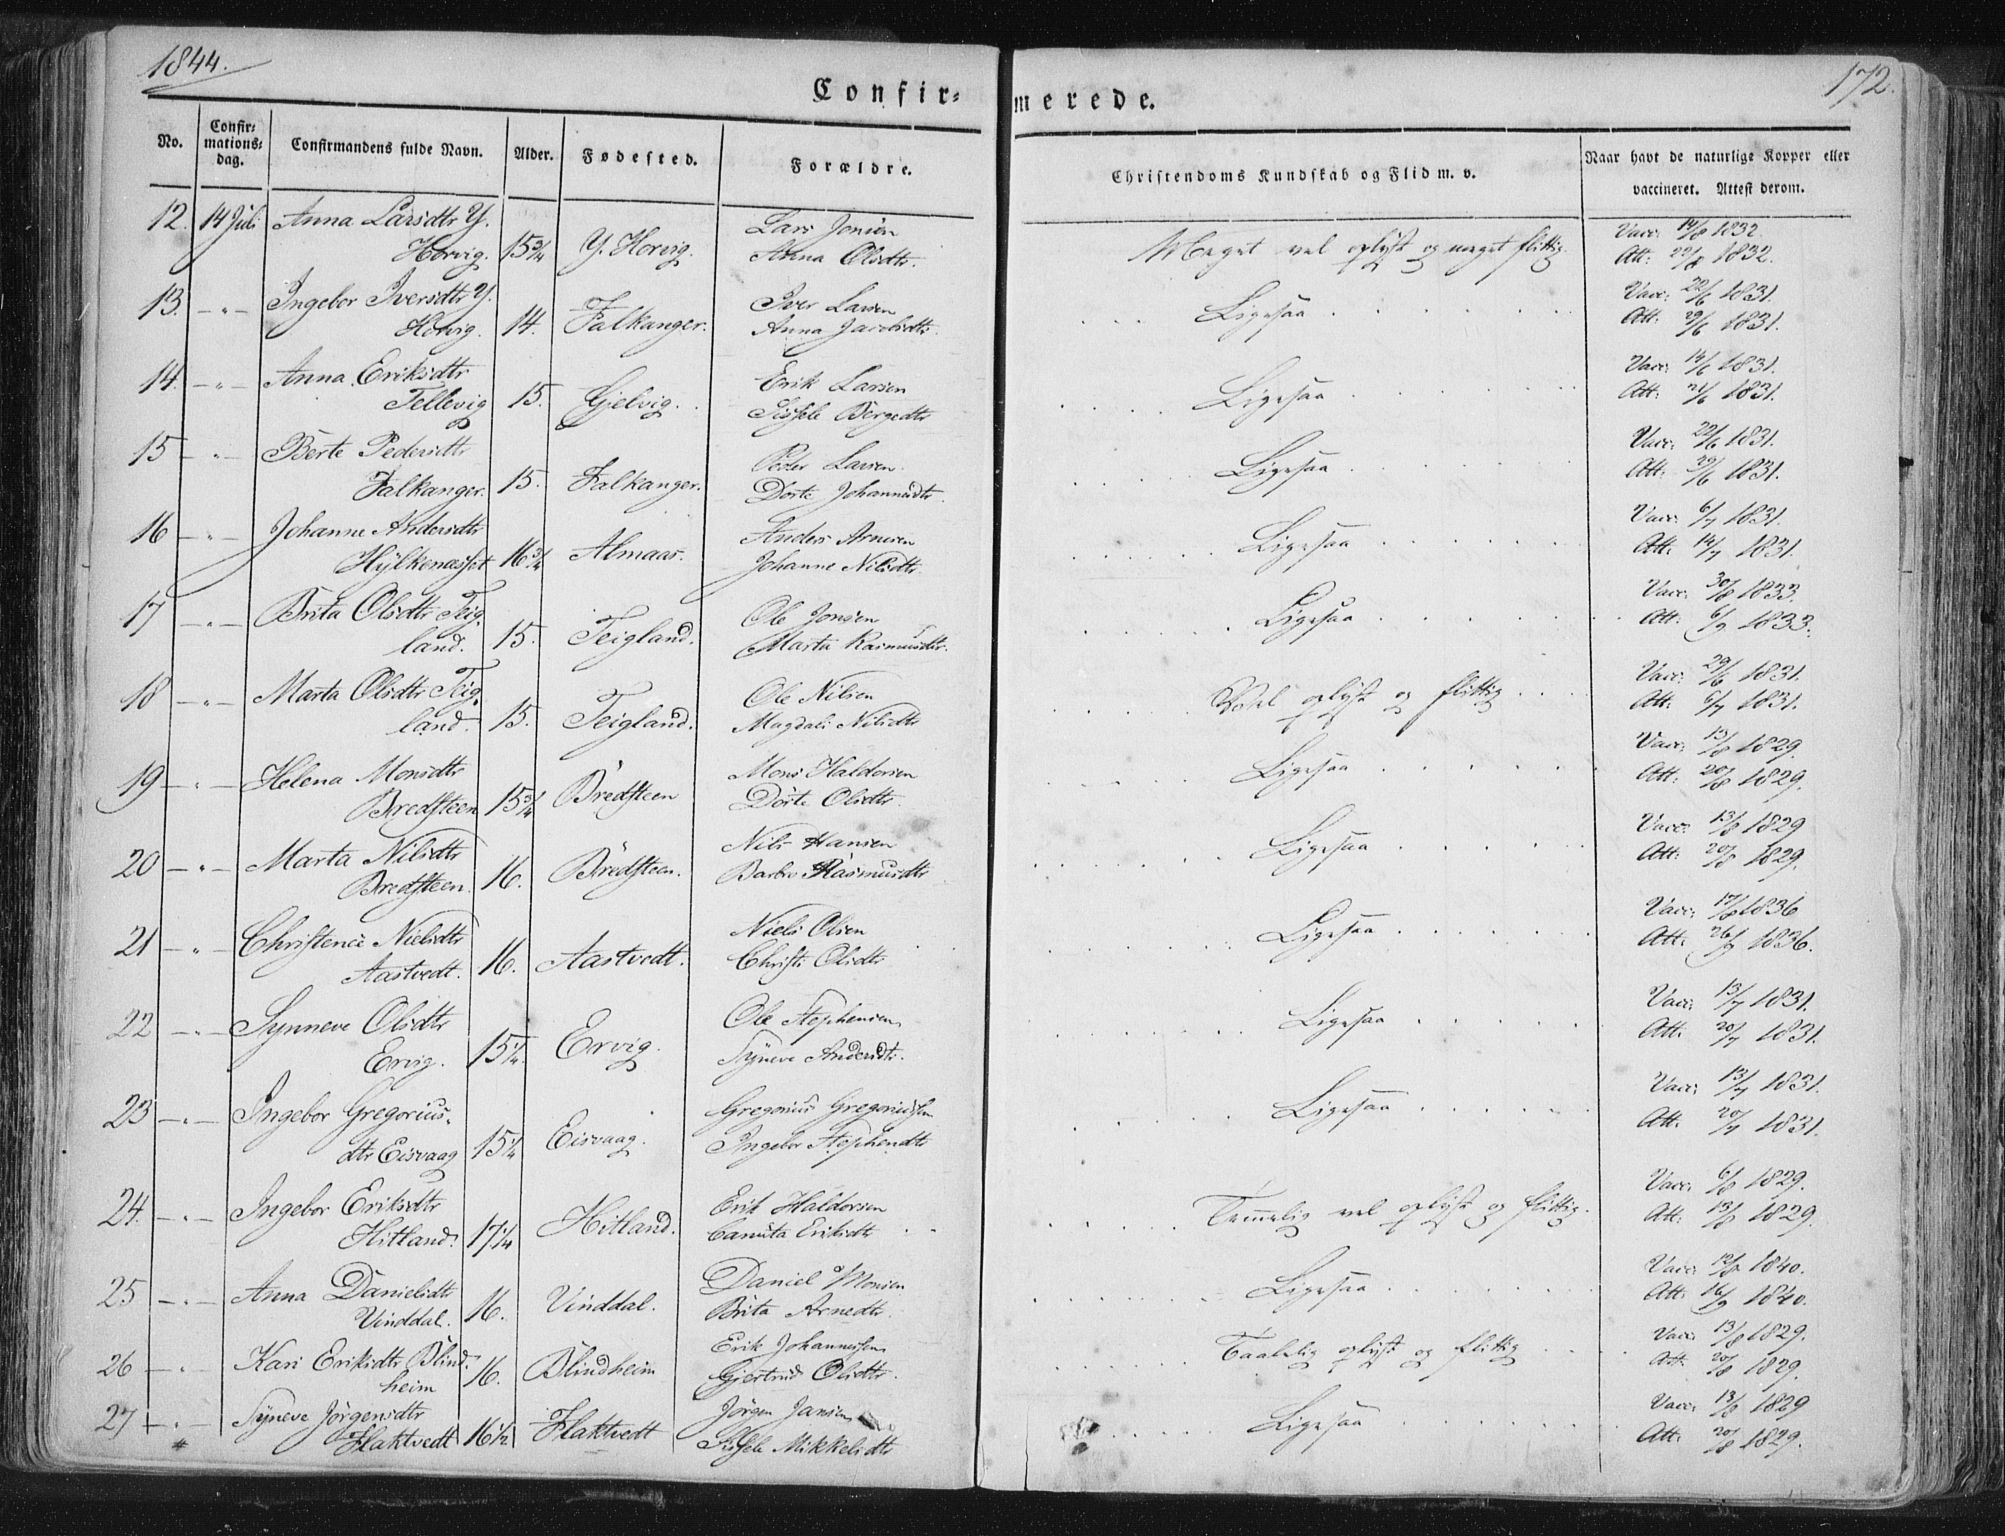 1844.
172.
Confir=
merede.
No.
Confir=
mations=
dag.
Confirmandens fulde Navn.
Alder.
Fødested.
Forældre.
Christendoms Kundskab og Flid m. v.
Naar havt de naturlige Kopper eller
vaccineret. Attest derom.
12. 14 Juli Anna Larsdtr Y. Lars Jonsen Vacc: 14/8 1832.
Horvig. 15 3/4 Y. Horvig. Anna Olsdtr. Meget vel oplyst og meget flittig. Att: 22/8 1832.
13. — „ — Ingebor Iversdtr Y. Iver Larsen Vacc: 22/6 1831.
Horvig. 14. Falkanger. Anna Jacobsdtr. Ligesaa Att: 29/6 1831.
14. — „ — Anna Eriksdtr Erik Larsen Vacc: 14/6 1831.
Tellevig 15. Gjelvig. Sissele Børgedtr Ligesaa Att: 21/6 1831.
15 — „ — Berte Pedersdtr Peder Larsen Vacc: 22/6 1831.
Falkanger. 15. Falkanger. Dorte Johannesdtr. Ligesaa Att: 29/6 1831.
16 — „ — Johanne Andersdtr Anders Arnesen Vacc: 6/7 1831.
Hylkenæsset 16 3/4 Almaas. Johanne Nilsdtr. Ligesaa Att: 14/7 1831.
17 — „ — Brita Olsdtr Teig- Ole Jonsen Vacc: 30/8 1833.
land. 15. Teigland. Marta Rasmusdtr. Ligesaa Att: 6/9 1833.
18 — „ — Marta Olsdtr Teig- Ole Nilsen Vacc: 29/6 1831.
land. 15. Teigland. Magdali Nilsdtr Vel oplyst og flittig Att: 6/7 1831.
19 — „ — Helena Monsdtr Mons Haldorsen Vacc: 13/8 1829.
Bredsteen 15 3/4 Bredsteen Dorte Olsdtr. Ligesaa Att: 20/8 1829.
20 — „ — Marta Nilsdtr Nils Hansen Vacc: 13/8 1829
Bredsteen. 16. Bredsteen. Barbro Rasmusdtr Ligesaa Att: 20/8 1829.
21 — „ — Christence Nielsdtr Niels Olsen Vacc: 17/8 1836
Aastvedt. 16. Aastvedt. Christi Olsdtr Ligesaa Att: 1836.
22 — „ — Synneve Olsdtr Ole Stephensen Vacc: 13/7 1831.
Ervig. 15 1/4. Ervig. Syneve Andersdtr. Ligesaa Att: 20/7 1831.
23 — „ — Ingebor Gregorius- Gregorius Gregoriussen Vacc: 13/7 1831.
dtr Eisvaag 15 1/4 Eisvaag. Ingebor Stephensdtr Ligesaa Att: 20/7 1831.
24. — „ — Ingebor Eriksdtr Erik Haldorsen Vacc: 6/8 1829.
Hitland. 17 1/4 Hitland. Canuta Eriksdtr Temmelig vel oplyst og flittig. Att: 13/8 1829.
25 — „ — Anna Danielsdtr Daniel Monsen Vacc: 1840.
Vinddal. 16. Vinddal. Brita Arnedtr. Ligesaa Att: 16/9 1840.
26 — „ — Kari Eriksdtr Blind- Erik Johannessen Vacc: 13/8 1829.
heim 16. Blindheim Gjertrud Olsdtr. Taalelig oplyst og flittig Att: 20/8 1829.
27 — „ — Syneve Jørgensdtr Jørgen Jansen Vacc: 13/8 1829
Flaktvedt 16 1/2 Flaktvedt Sissele Mikkelsdtr Ligesaa Att: 20/8 1829.